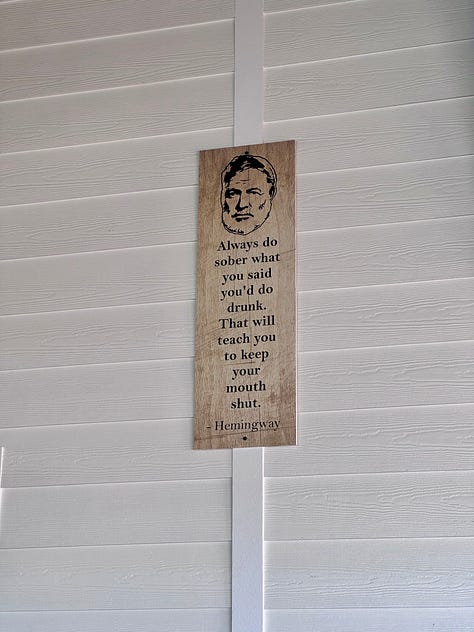 Always do
sober what
you said
you'd do
drunk.
That will
teach you
to keep
your
mouth
shut.
- Hemingway